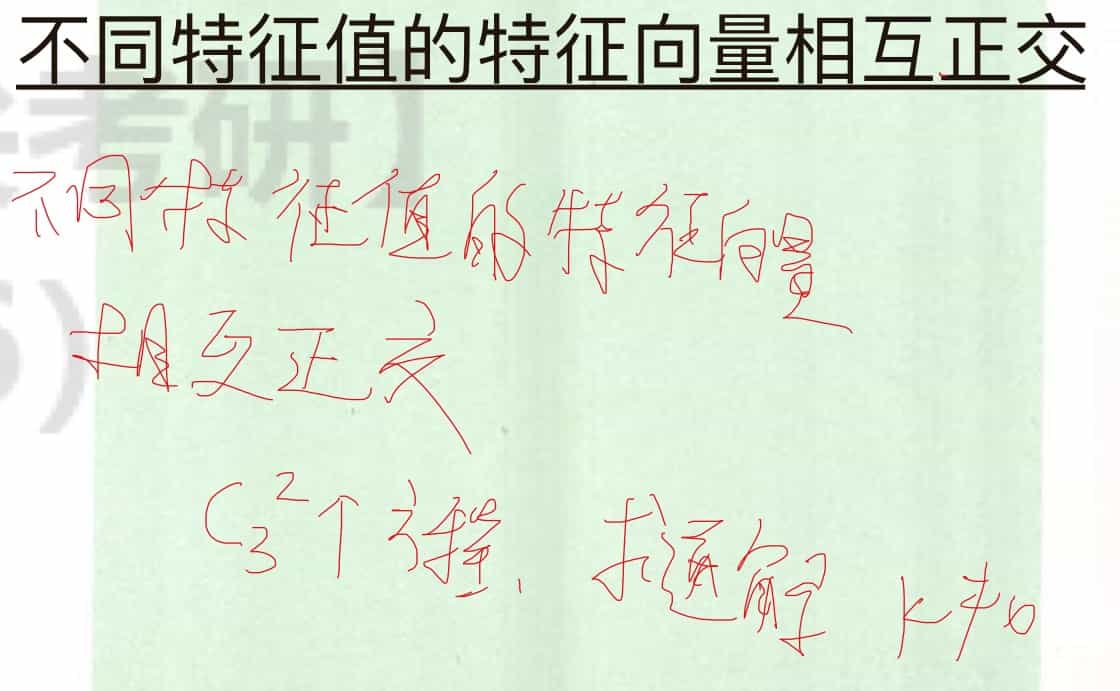 不同特征值的特征向量相互正交
考研】
不同特征值的特征向量
相互正交
C₃²个方程、求通解 k≠0